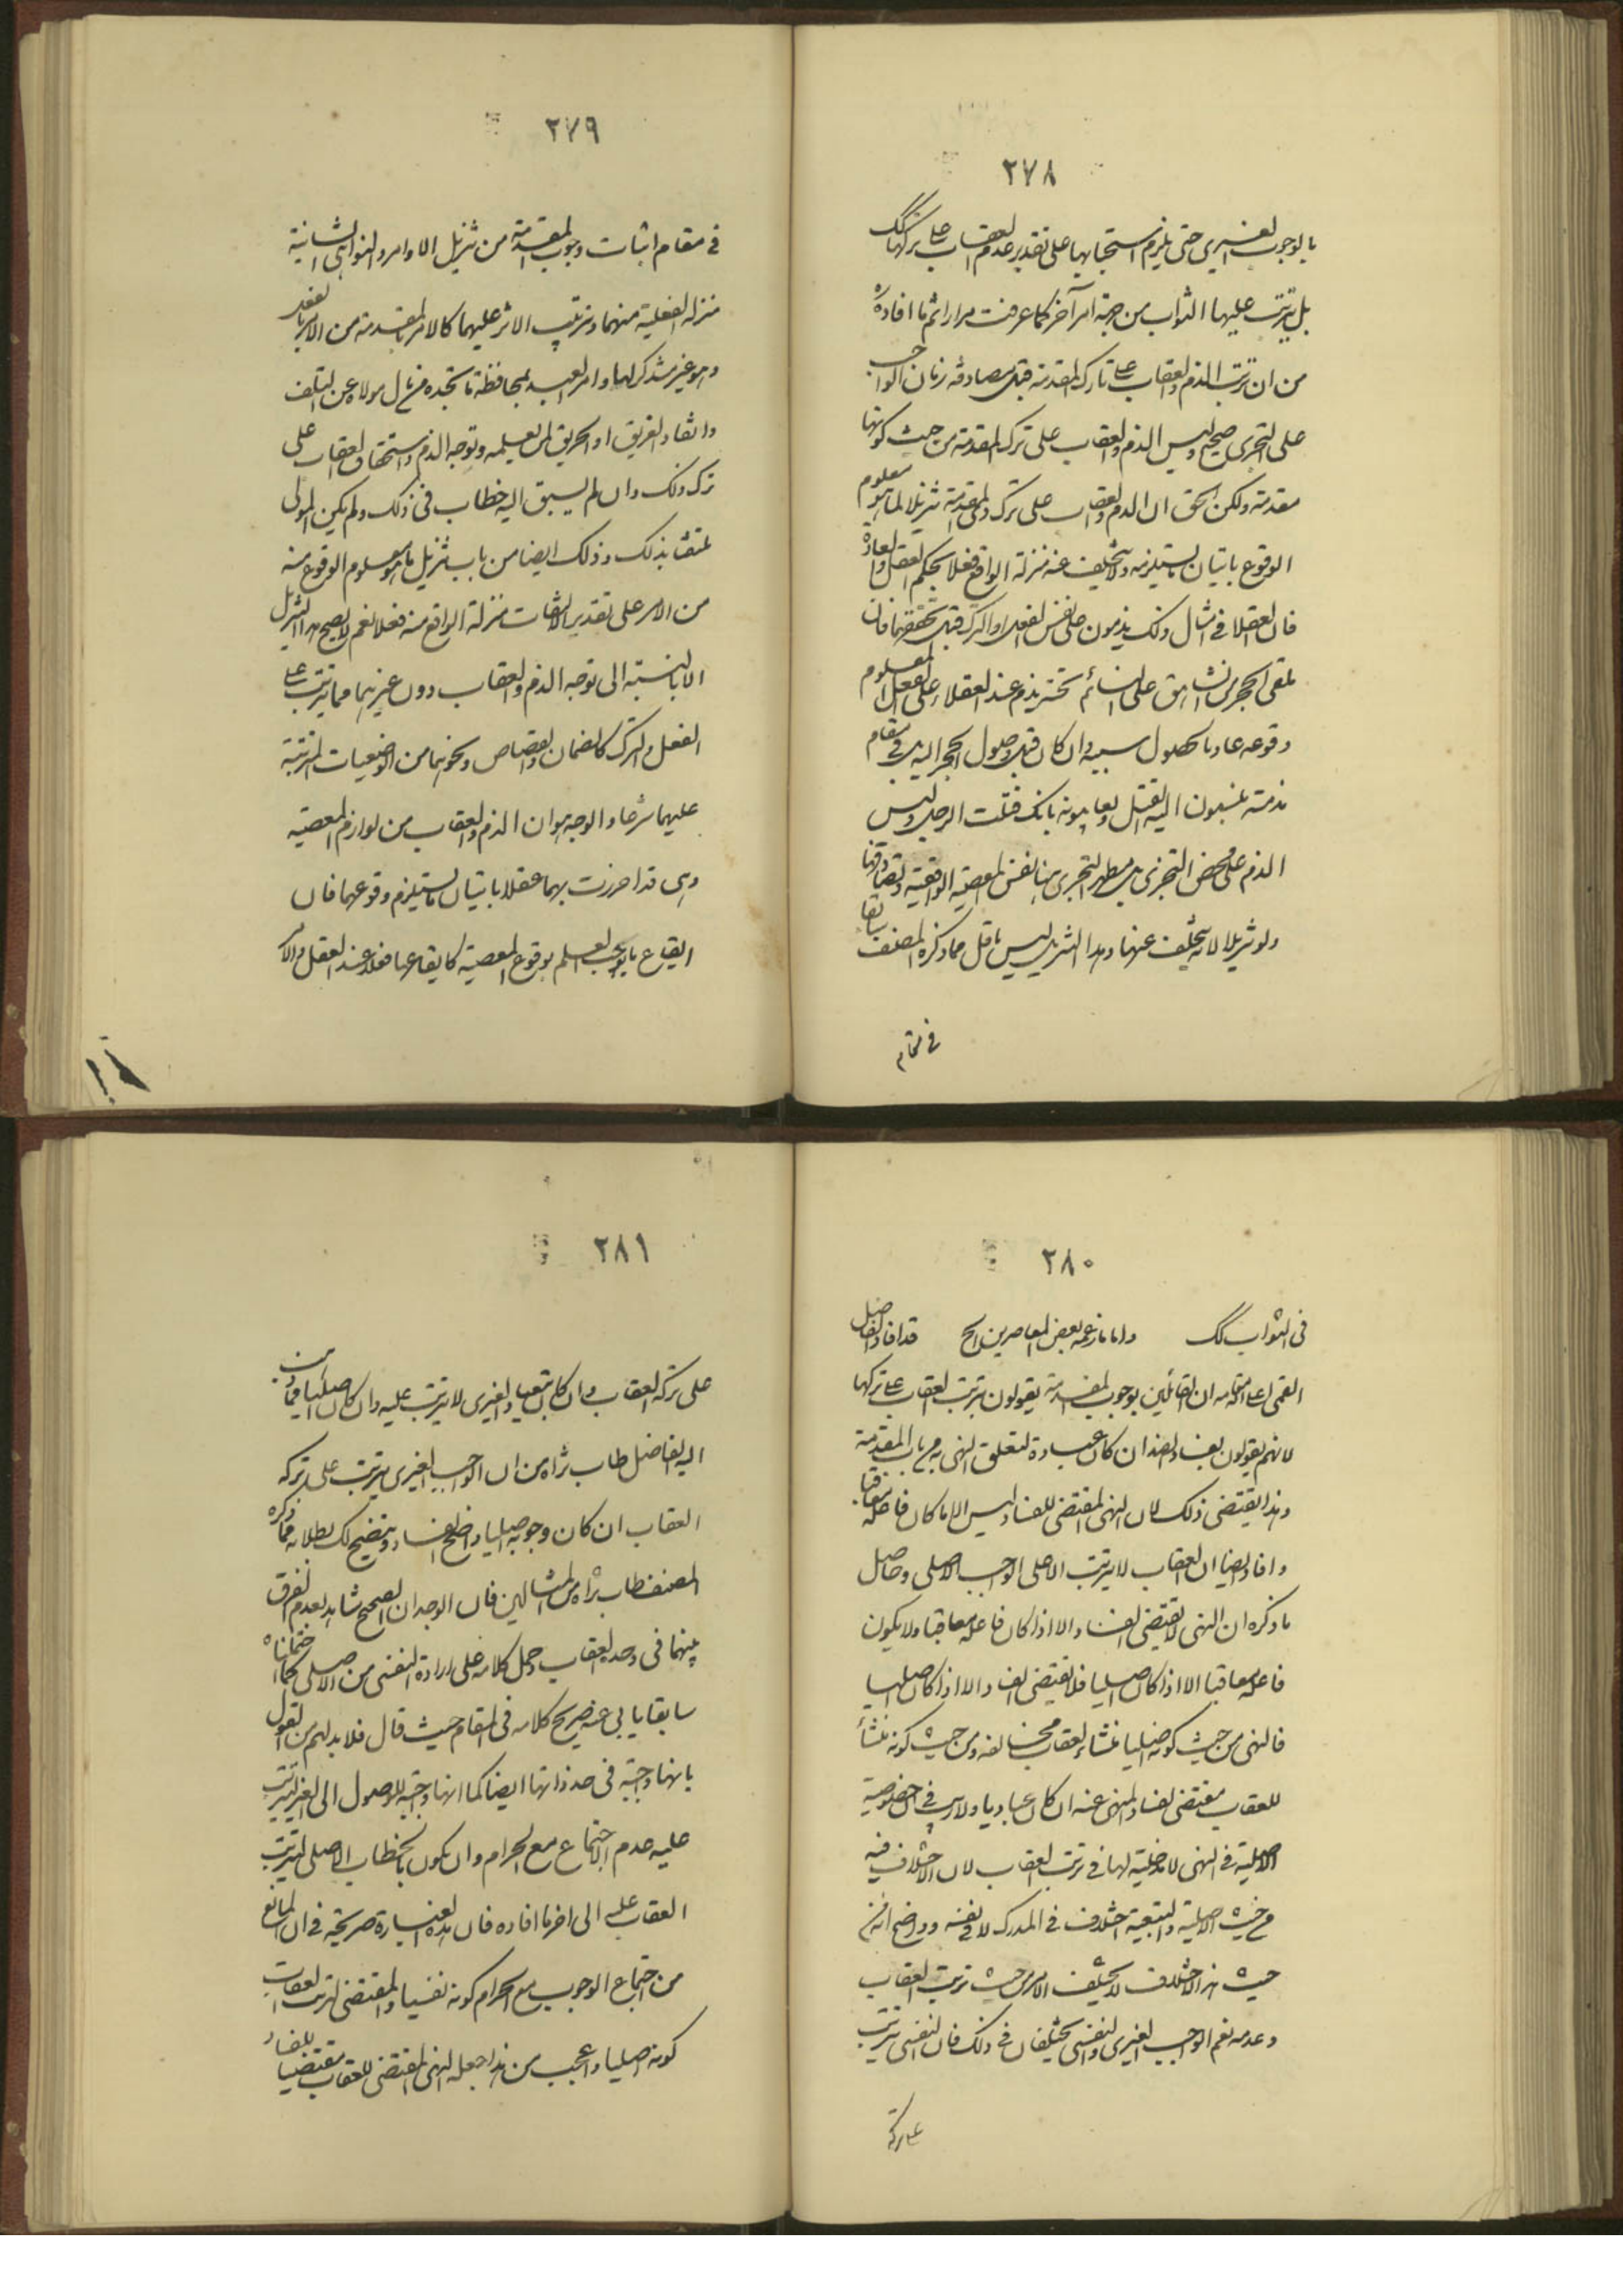 ٢٧٨
بالوجوب الغيري حتى يلزم استحبابها على تقدير عدم العقاب على تركها كك
بل يترتب عليها الثواب من جهة امر آخر كما عرفت مرارا ثم ما افاده
من ان ترتب الذم والعقاب على تارك المقدمة قبل مصادفة زمان الواجب
على التجري صحيح وليس الذم والعقاب على ترك المقدمة من حيث كونها
مقدمة ولكن الحق ان الذم والعقاب على ترك ذي المقدمة تنزيلا لما هو معلوم
الوقوع باتيان ما يستلزمه ولا يتخلف عنه منزلة الواقع فعلا بحكم العقل والعادة
فان العقلا في امثال ذلك يذمون على نفس الفعل او الترك قبل تحققهما فان
ملقى الحجر من شاهق على النائم تحته يذم عند العقلاء على الفعل المعلوم
وقوعه عادة بحصول سببه وان كان قبل وصول الحجر اليه بل في مقام
مذمته ينسبون اليه القتل ويعاتبونه بانك قتلت الرجل وليس
الذم على محض التجري بل مظهر التجري هنا نفس المعصية الواقعية ولو تصادقها
ولو تنزيلا لانه لا يتخلف عنها وهذا التنزيل ليس باقل مما ذكره المصنف سابقا
في مقام
٢٧٩
في مقام اثبات وجوب المقدمة من تنزيل الاوامر والنواهي الشأنية
منزلة الفعلية منهما وترتب الاثر عليهما كالامر بالمقدمة من الامر بالفعل
وهو غير مشدكر لها وامر العبد لمحافظة ما تجده من مال مولاه عن التلف
وانقاذ الغريق او الحريق لمن يعلمه وتوجه الذم واستحقاق العقاب على
ترك ذلك وان لم يسبق اليه خطاب في ذلك ولم يكن المولى
ملتفتا بذلك وذلك ايضا من باب تنزيل ما هو معلوم الوقوع منه
من الامر على تقدير الالتفات منزلة الواقع منه فعلا نعم لا يصح هذا التنزيل
الا بالنسبة الى توجه الذم والعقاب دون غيرهما مما يترتب على
الفعل والترك كالضمان والقصاص ونحوهما من الوضعيات المترتبة
عليهما شرعا والوجه هو ان الذم والعقاب من لوازم المعصية
وهي قد احرزت بهما عقلا باتيان ما يستلزم وقوعهما فان
ايقاع ما يوجب العلم بوقوع المعصية كايقاعها فعلا عند العقل والامر
٢٨٠
في الثواب كك واما ما زعمه بعض المعاصرين الخ قد افاد الفاضل
القمي اعلى الله مقامه ان القائلين بوجوب المقدمة يقولون بترتب العقاب على تركها
لانهم يقولون بفساد الضد ان كان عبادة لتعلق النهي به من باب المقدمة
وهذا يقتضي ذلك لان النهي المقتضي للفساد ليس الا ما كان فاعله معاقبا
وافاد ايضا ان العقاب لا يترتب الا على الواجب الاصلي وحاصل
ما ذكره ان النهي لا يقتضي الفساد الا اذا كان فاعله معاقبا ولا يكون
فاعله معاقبا الا اذا كان اصليا فلا يقتضي الفساد الا اذا كان اصليا
فالنهي من حيث كونه اصليا منشاء لعقاب مخالفه ومن حيث كونه منشأ
للعقاب مقتضي لفساد المنهي عنه ان كان عباديا ولا ريب في ان خصوصية
الاصلية في النهي لا مدخلية لها في ترتب العقاب لان الاختلاف فيه
من حيث الاصلية والتبعية اختلاف في المدرك لا في نفسه وواضح انه من
حيث هذا الاختلاف لا يختلف الامر من حيث ترتب العقاب
وعدمه نعم الواجب الغيري والنفسي يختلفان في ذلك فان النفسي يترتب
على تركه
٢٨١
على تركه العقاب وان كان تبعيا والغيري لا يترتب عليه وان كان اصليا فما ذهب
اليه الفاضل طاب ثراه من ان الواجب الغيري يترتب على تركه
العقاب ان كان وجوبه اصليا واضح الفساد ويتضح لك بطلانه مما ذكره
المصنف طاب ثراه من المثالين فان الوجدان الصحيح شاهد لعدم الفرق
بينهما في وحدة العقاب وحمل كلامه على ارادة النفسي من الاصلي كما احتملناه
سابقا يابى عنه صريح كلامه في المقام حيث قال فلا بد لهم من القول
بانها واجبة في حد ذاتها ايضا كما انها واجبة للوصول الى الغير ليترتب
عليه عدم الاجتماع مع الحرام وان يكون بالخطاب الاصلي ليترتب
العقاب عليه الى اخر ما افاده فان هذه العبارة صريحة في ان المانع
من اجتماع الوجوب مع الحرام كونه نفسيا والمقتضي لترتب العقاب
كونه اصليا واعجب من هذا جعله النهي المقتضي للعقاب مقتضيا للفساد